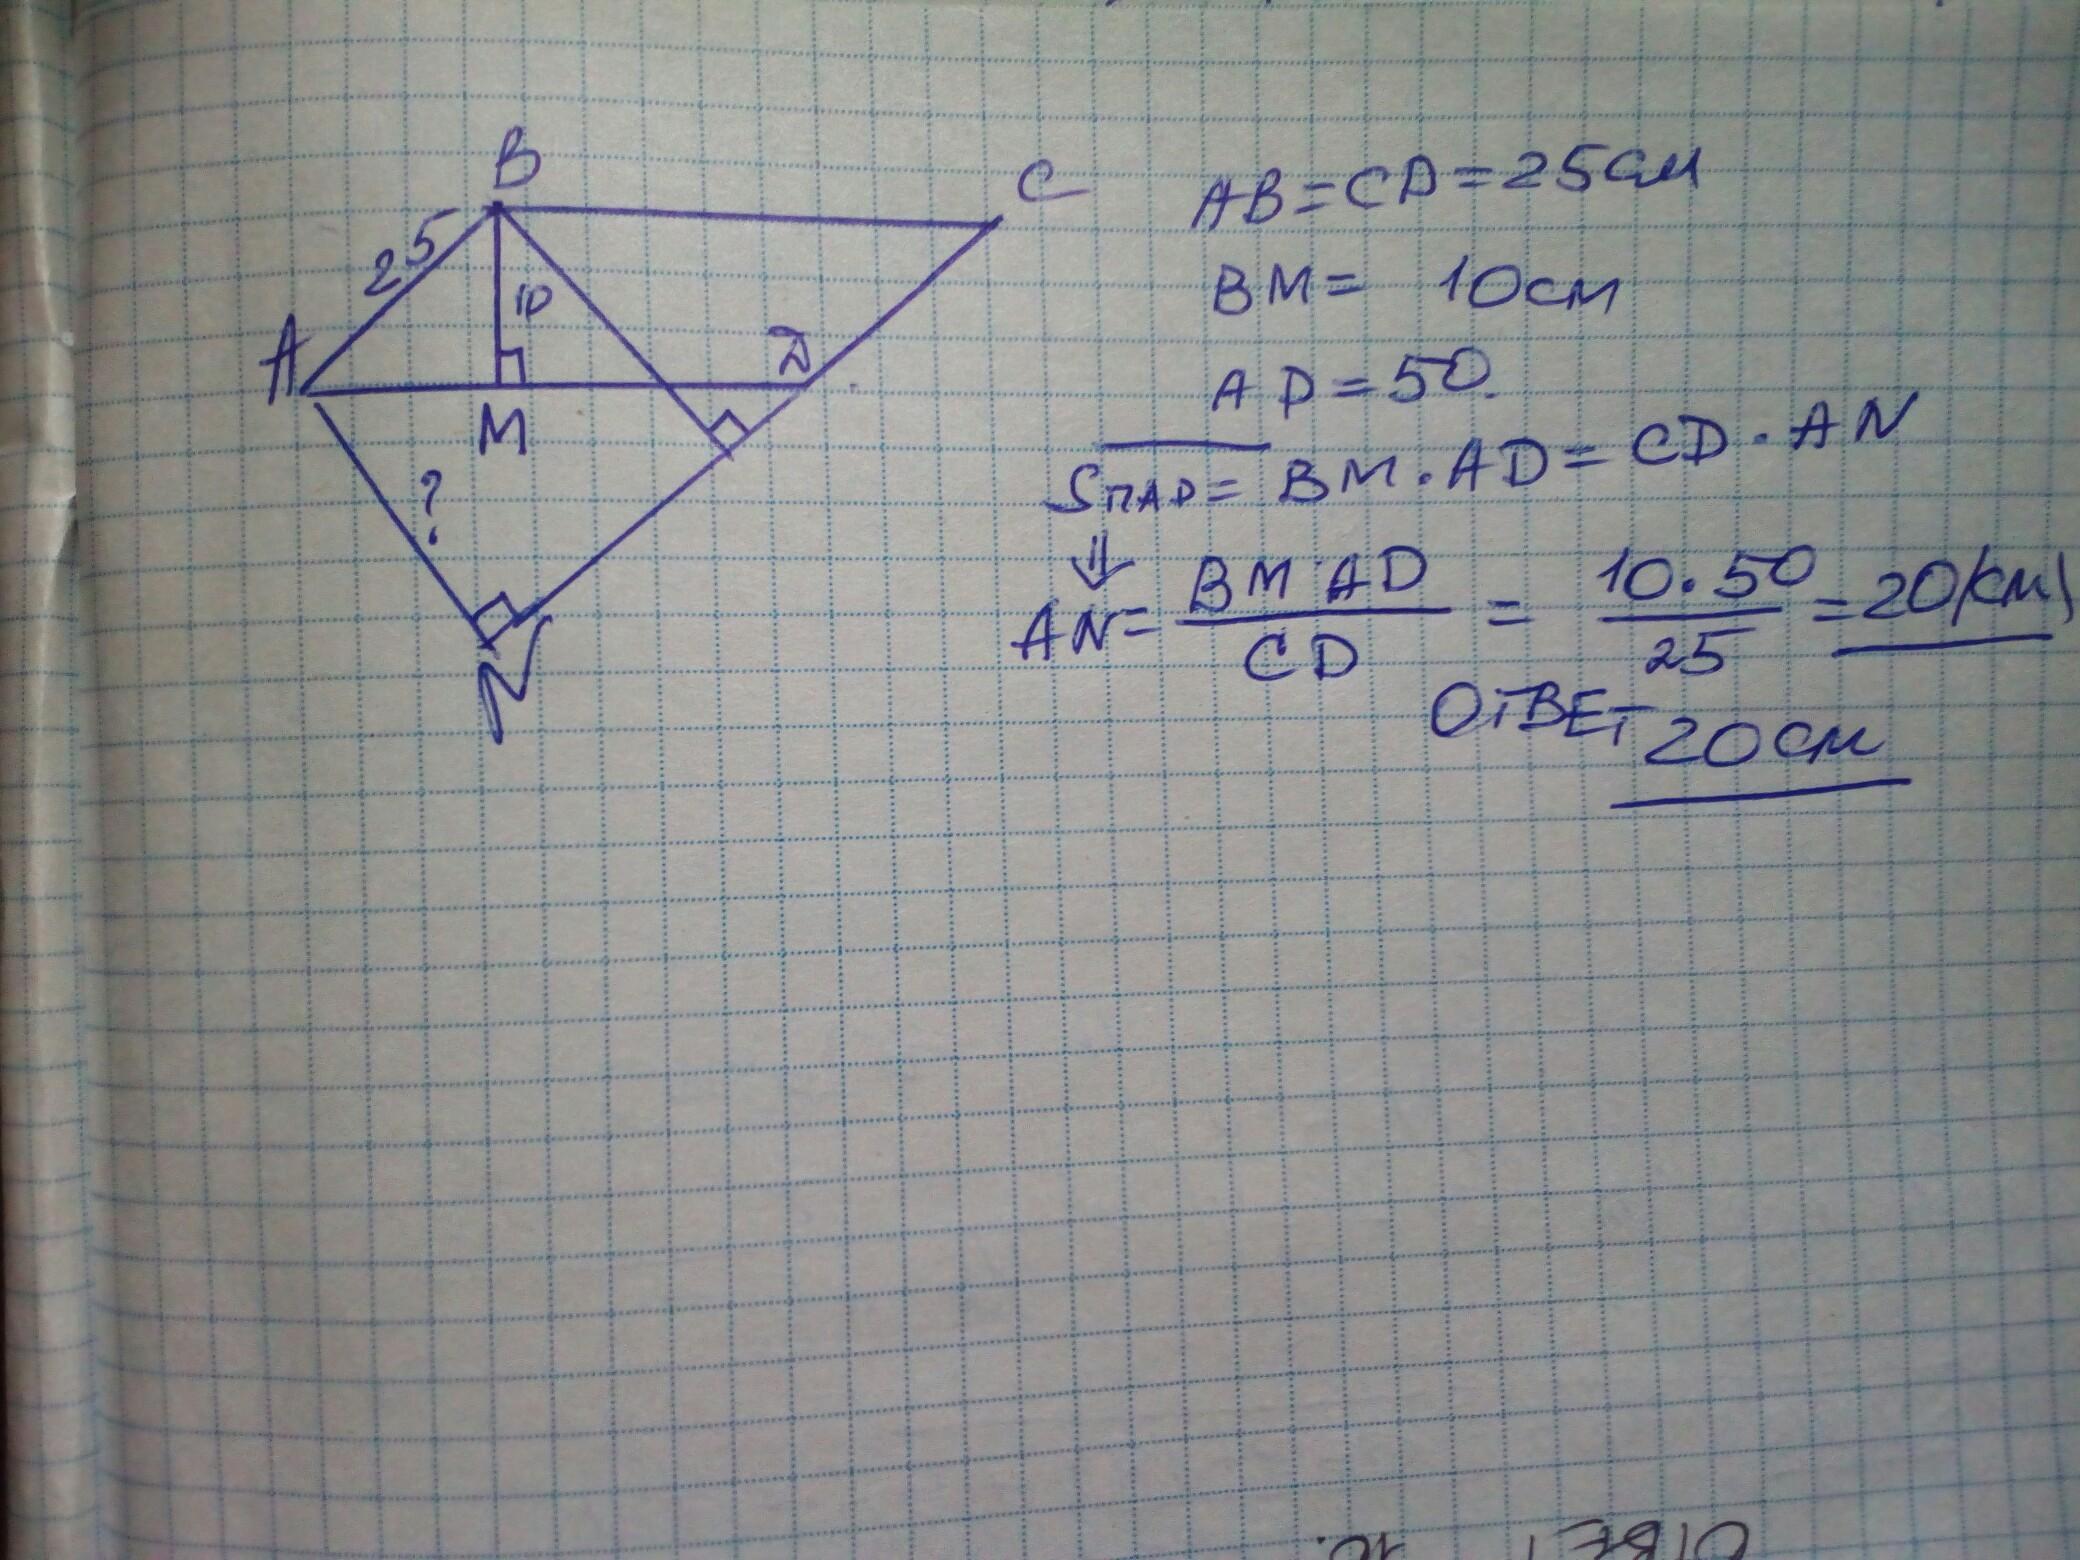 B
C
25
10
A
D
M
?
N
AB=CD=25см
BM= 10см
AD=50.
Sпар= BM·AD=CD·AN
⇓
AN= BM·AD/CD = 10·50/25 =20(см)
ОТВЕТ 20см
ОТВЕТ